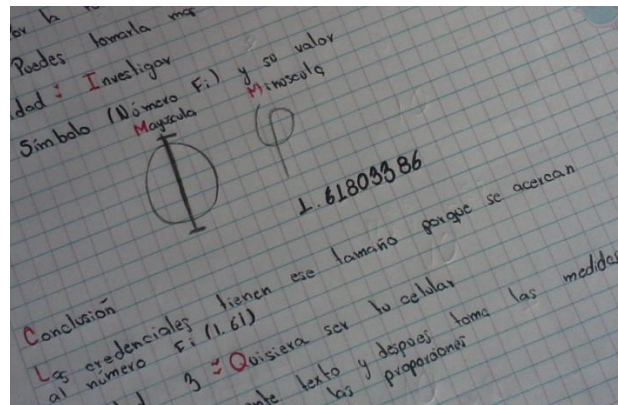 la
Puedes tomarla mas
dad : Investigar
Símbolo (Número Fi) y su valor
Mayuscula Minuscula
Φ φ
1.61803386
Conclusión
Las credenciales tienen ese tamaño porque se acercan
al número Fi (1.61)
3 : Quisiera ser tu celular
nte texto y despues toma las medidas
las proporciones